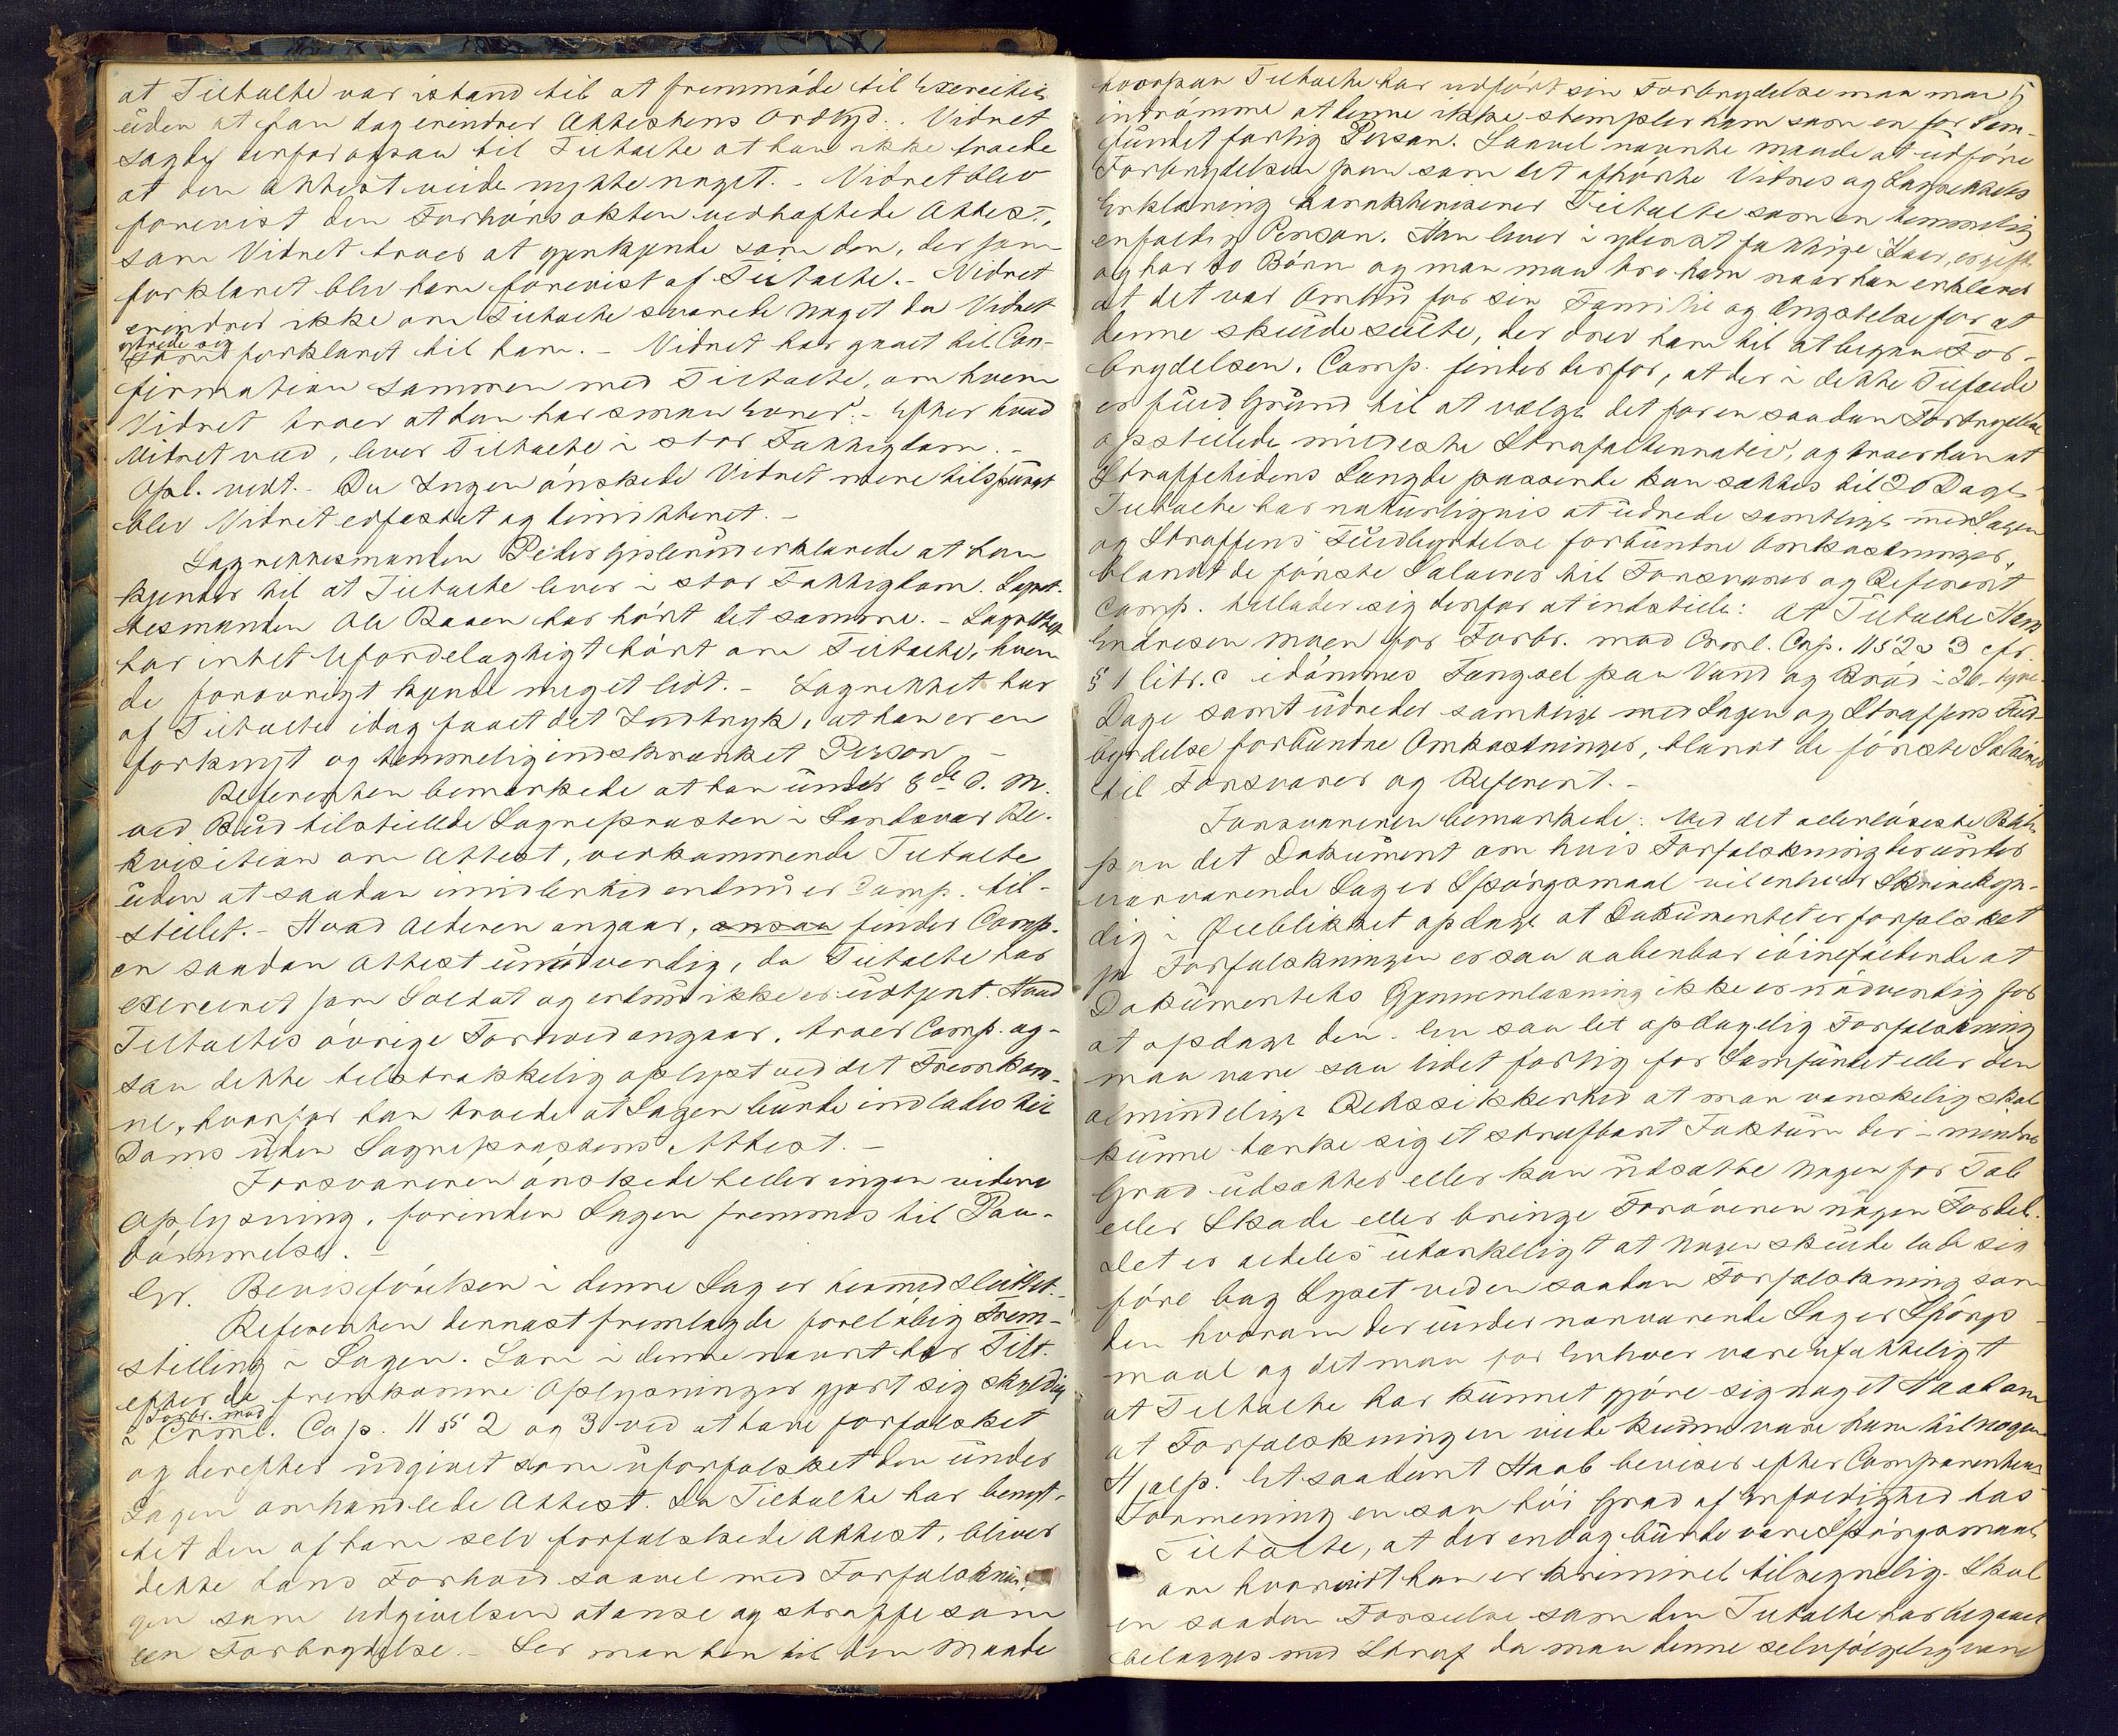 at Tiltalte var istand til at fremmøde til Exercitien
uden at han dog erindrer Attestens Ordlyd. Vidnet
sagde derfor ogsaa til Tiltalte at han ikke troede
at den Attest vilde nytte noget. - Vidnet blev
forevist den Forhørsakten vedhæftede Attest,
som Vidnet troer at gjenkjende som den, der som
forklaret blev ham forevist af Tiltalte. - Vidnet
erindrer ikke om Tiltalte svarede Noget da Vidnet
ytrede sig
som forklaret til ham. - Vidnet har gaaet til Con-
firmation sammen med Tiltalte, om hvem
Vidnet troer at han har smaa Evner. - Efter hvad
Vidnet ved, lever Tiltalte i stor Fattigdom. -
Opl. vedt. - Da Ingen ønskede Vidnet mere tilspurgt
blev Vidnet edfæstet og dimitteret. -
Lagrettesmanden Peder Gislerud erklærede at han
kjender til at Tiltalte lever i stor Fattigdom. Lagret-
tesmanden Ole Raaen har hørt det samme. - Lagrettet
har intet Ufordelagtigt hørt om Tiltalte, hvem
de forøvrigt kjende meget lidt. - Lagrettet har
af Tiltalte idag faaet det Indtryk, at han er en
forknyt og temmelig indskrænket Person. -
Referenten bemærkede at han under 8de d. M.
ved Bud tilstillede Sognepræsten i Sandsvær Re-
kvisition om Attest, vedkommende Tiltalte
uden at saadan imidlertid endnu er Comp. til-
stillet. - Hvad Alderen angaar, ansaa finder Comp.
en saadan Attest unødvendig, da Tiltalte har
exerceret som Soldat og endnu ikke er udtjent. Hvad
Tiltaltes øvrige Forhold angaar, troer Comp. og-
saa dette tilstrækkelig oplyst ved det Fremkom-
ne, hvorfor han troede at Sagen burde indlades til
Doms uden Sognepræstens Attest. -
Forsvareren ønskede heller ingen videre
Oplysning, forinden Sagen fremmes til Paa-
dømmelse. -
Er. Bevisførelsen i denne Sag er hermed sluttet. -
Referenten dernæst fremlagde foreløbig Frem-
stilling i Sagen. Som i denne nævnt har Tilt.
efter de fremkomne Oplysninger gjort sig skyldig
Forbr. mod
i Crml. Cap. 11 § 2 og 3 ved at have forfalsket
og derefter udgivet som uforfalsket den under
Sagen omhandlede Attest. Da Tiltalte har benyt-
tet den af ham selv forfalskede Attest, bliver
dette hans Forhold saavel med Forfalsknin-
gen som Udgivelsen at anse og straffe som
een Forbrydelse. - Ser man hen til den Maade
hvorpaa Tiltalte har udført sin Forbrydelse maa man
5
indrømme at denne ikke stempler ham som en for Sam-
fundet farlig Person. Saavel nævnte Maade at udføre
Forbrydelsen paa som det afhørte Vidnes og Lagrettets
Erklæring karakteriserer Tiltalte som en temmelig
enfoldig Person. Han lever i yderst fattige Kaar, er gift
og har to Børn og man maa tro ham naar han erklærer
at det var Omhu for sin Familie og Ængstelse for at
denne skulde sulte, der drev ham til at begaa For-
brydelsen. Comp. finder derfor, at der i dette Tilfælde
er fuld Grund til at vælge det for en saadan Forbrydelse
opstillede mildeste Strafalternativ, og troer han at
Straffetidens Længde passende kan sættes til 20 Dage.
Tiltalte har naturligvis at udrede samtlige med Sagen
og Straffens Fuldbyrdelse forbundne Omkostninger,
blandt de første Salærer til Forsvarer og Referent
Comp. tillader sig derfor at indstille: at Tiltalte Hans
Endresen Moen for Forbr. mod Crml. Cap. 11 § 2 & 3 cfr.
§ 1 litr. c idømmes Fængsel paa Vand og Brød i 20 - tyve -
Dage samt udreder samtlige med Sagen og Straffens Fuld-
byrdelse forbundne Omkostninger, blandt de første Salærer
til Forsvarer og Referent. -
Forsvareren bemærkede: Ved det allerløseste Blik
paa det Dokument om hvis Forfalskning der under
nærværende Sag er Spørgsmaal vil enhver Skrivekyn-
dig i Øieblikket opdage at Dokumentet er forfalsket
ja Forfalskningen er saa aabenbar iøinefaldende at
Dokumentets Gjennemlæsning ikke er nødvendig for
at opdage den. En saa let opdagelig Forfalskning
maa være saa lidet farlig for Samfundet eller den
almindelige Retssikkerhed at man vanskelig skal
kunne tænke sig et strafbart Faktum der i mindre
Grad udsætter eller kan udsætte Nogen for Tab
eller Skade eller bringe Forøveren nogen Fordel.
Det er aldeles utænkeligt at Nogen skulde lade sig
føre bag Lyset ved en saadan Forfalskning som
den hvorom der under nærværende Sag er Spørgs-
maal og det maa for Enhver være ufatteligt
at Tiltalte har kunnet gjøre sig noget Haab om
at Forfalskningen vilde kunne være ham til nogen
Hjælp. Et saadant Haab beviser efter Comparentens
Formening en saa høi Grad af Enfoldighed hos
Tiltalte, at der endog burde være Spørgsmaal
om hvorvidt han er kriminel tilregnelig. Skal
en saadan Forseelse som den Tiltalte har begaaet
belægges med Straf da maa denne selvfølgelig være